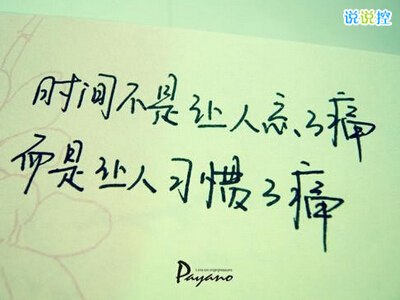 说说控
时间不是让人忘了痛
而是让人习惯了痛
Payano